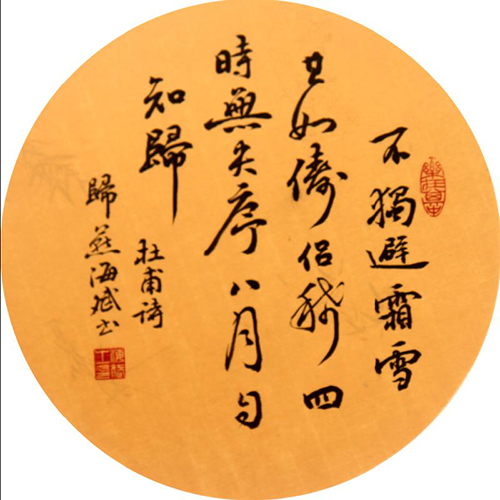 不獨避霜雪
其如儔侶稀四
時無失序八月自
知歸
杜甫詩
歸燕海斌书